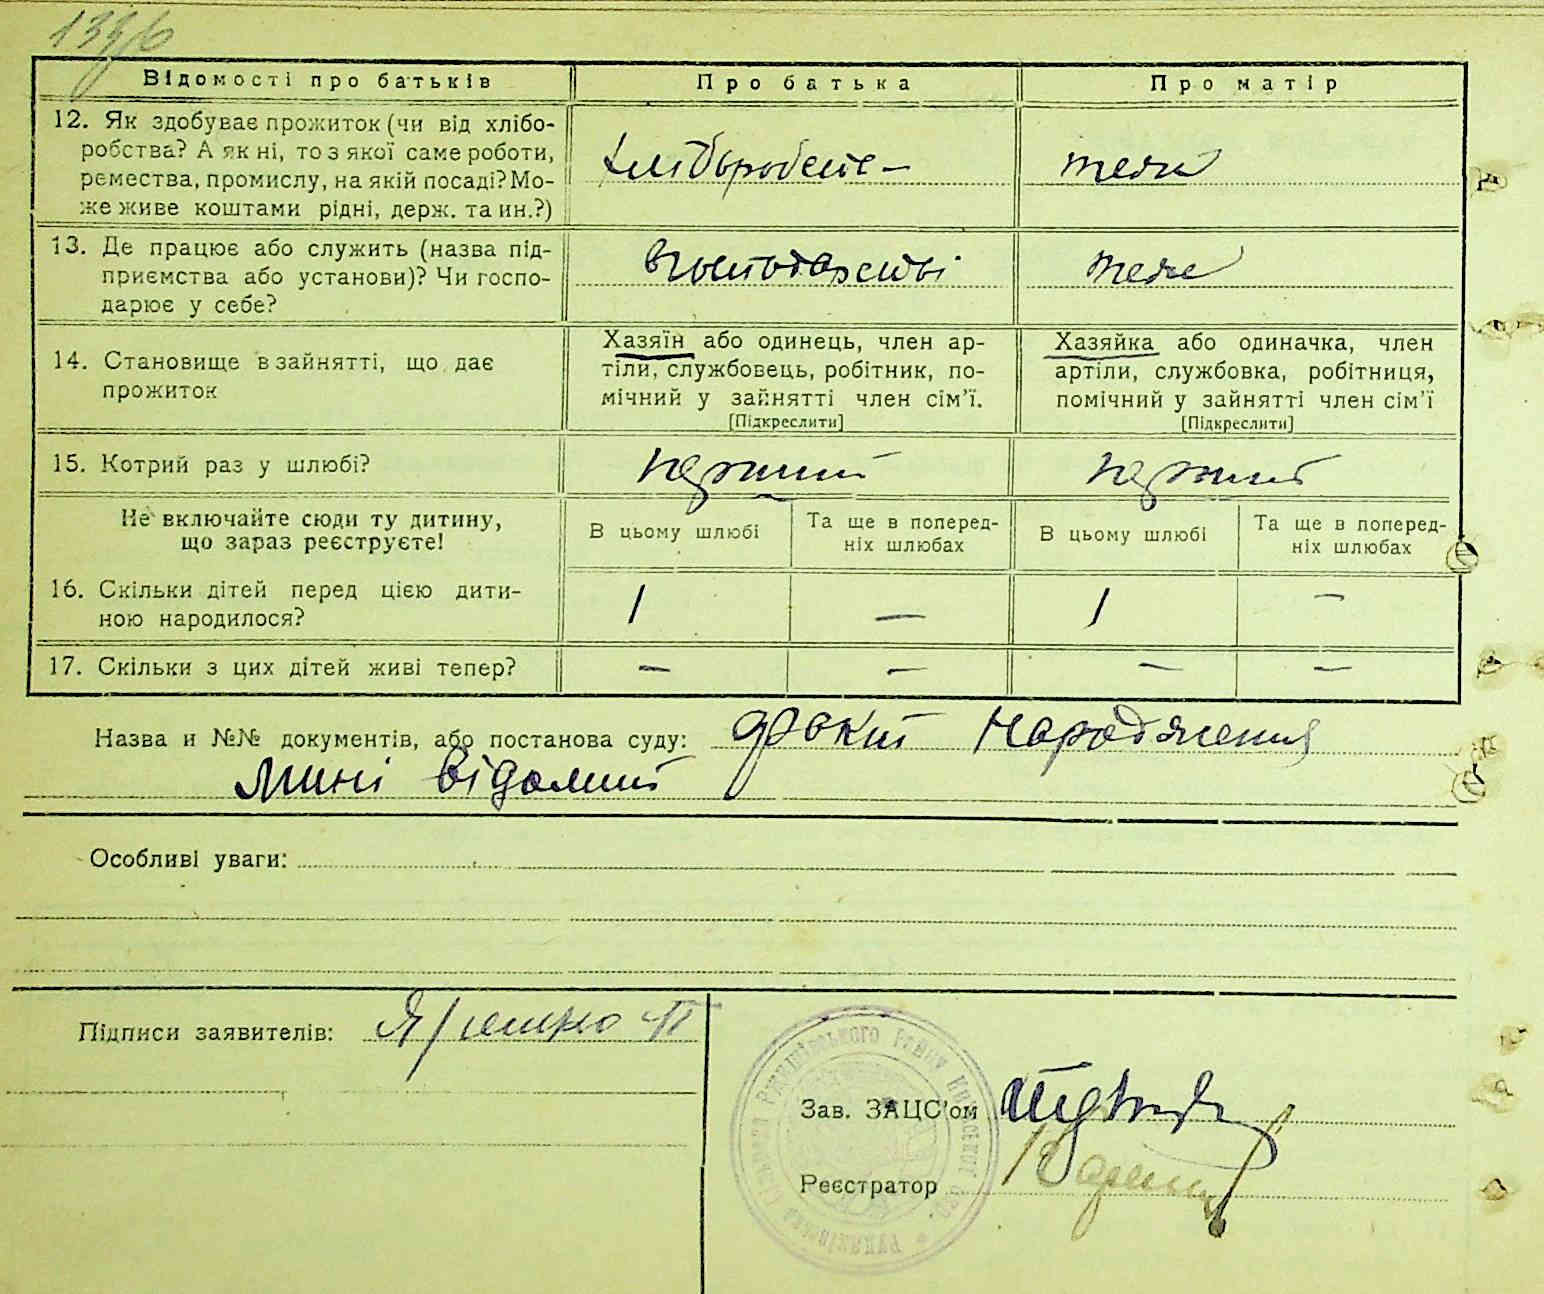 Відомості про батьків
Про батька
Про матір
12. Як здобуває прожиток (чи від хлібо-
робства? А як ні, то з якої саме роботи,
ремества, промислу, на якій посаді? Мо-
же живе коштами рідні, держ. та ин.?)
теж
13. Де працює або служить (назва під-
приємства або установи)? Чи госпо-
дарює у себе?
в господарстві
теж
14. Становище в зайнятті, що дає
прожиток
Хазяїн або одинець, член ар-
тіли, службовець, робітник, по-
мічний у зайнятті член сім'ї.
[Підкреслити]
Хазяйка або одиначка, член
артіли, службовка, робітниця,
помічний у зайнятті член сім'ї
[Підкреслити]
15. Котрий раз у шлюбі?
перший
перший
Не включайте сюди ту дитину,
що зараз реєструєте!
В цьому шлюбі
Та ще в поперед-
ніх шлюбах
В цьому шлюбі
Та ще в поперед-
ніх шлюбах
16. Скільки дітей перед цією дити-
ною народилося?
1
—
1
—
17. Скільки з цих дітей живі тепер?
—
—
—
—
Назва и №№ документів, або постанова суду: факт народження
мині відомий
Особливі уваги:
Підписи заявителів:
Зав. ЗАЦС'ом
Реєстратор